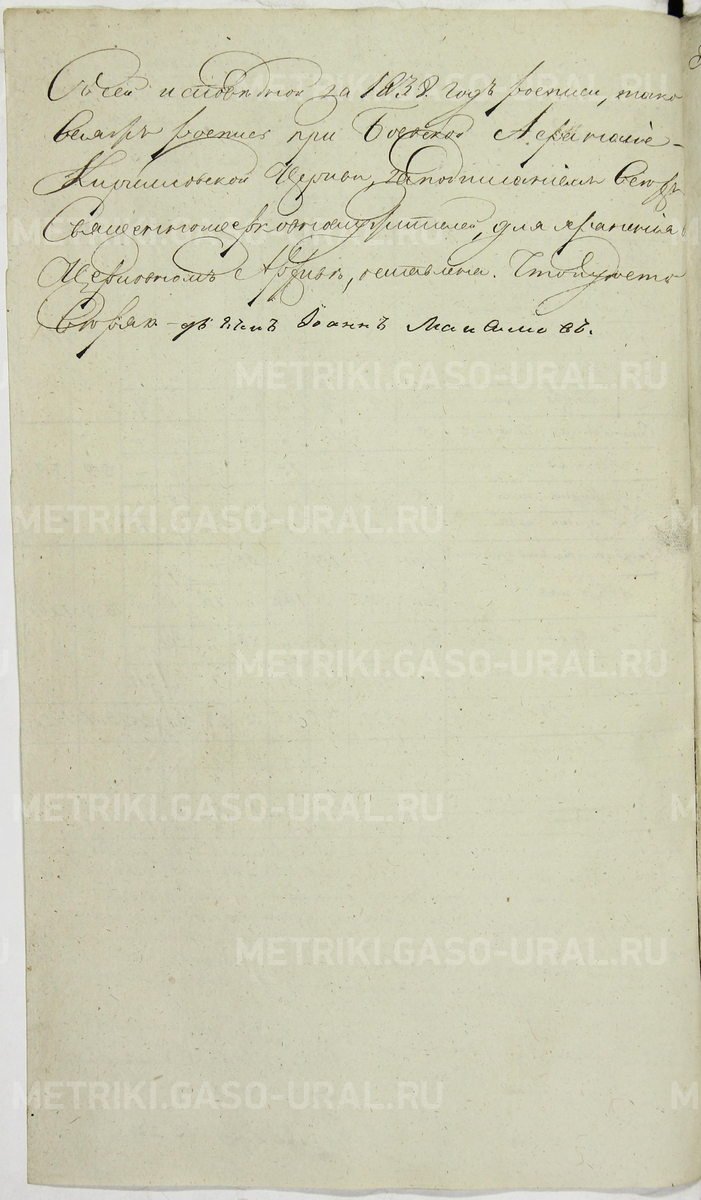 Съ сей исповѣдной за 1838 годъ росписи, тако
вая же роспись при Боевской Афанасіе-
Кирилловской Церкви, за подписаніемъ
Священноцерковнослужителей, для храненія
Церковномъ Архивѣ, оставлена. Что
дьячекъ Іоаннъ
METRIKI.GASO-URAL.RU
METRIKI.GASO-URAL.RU
METRIKI.GASO-URAL.RU
METRIKI.GASO-URAL.RU
METRIKI.GASO-URAL.RU
METRIKI.GASO-URAL.RU